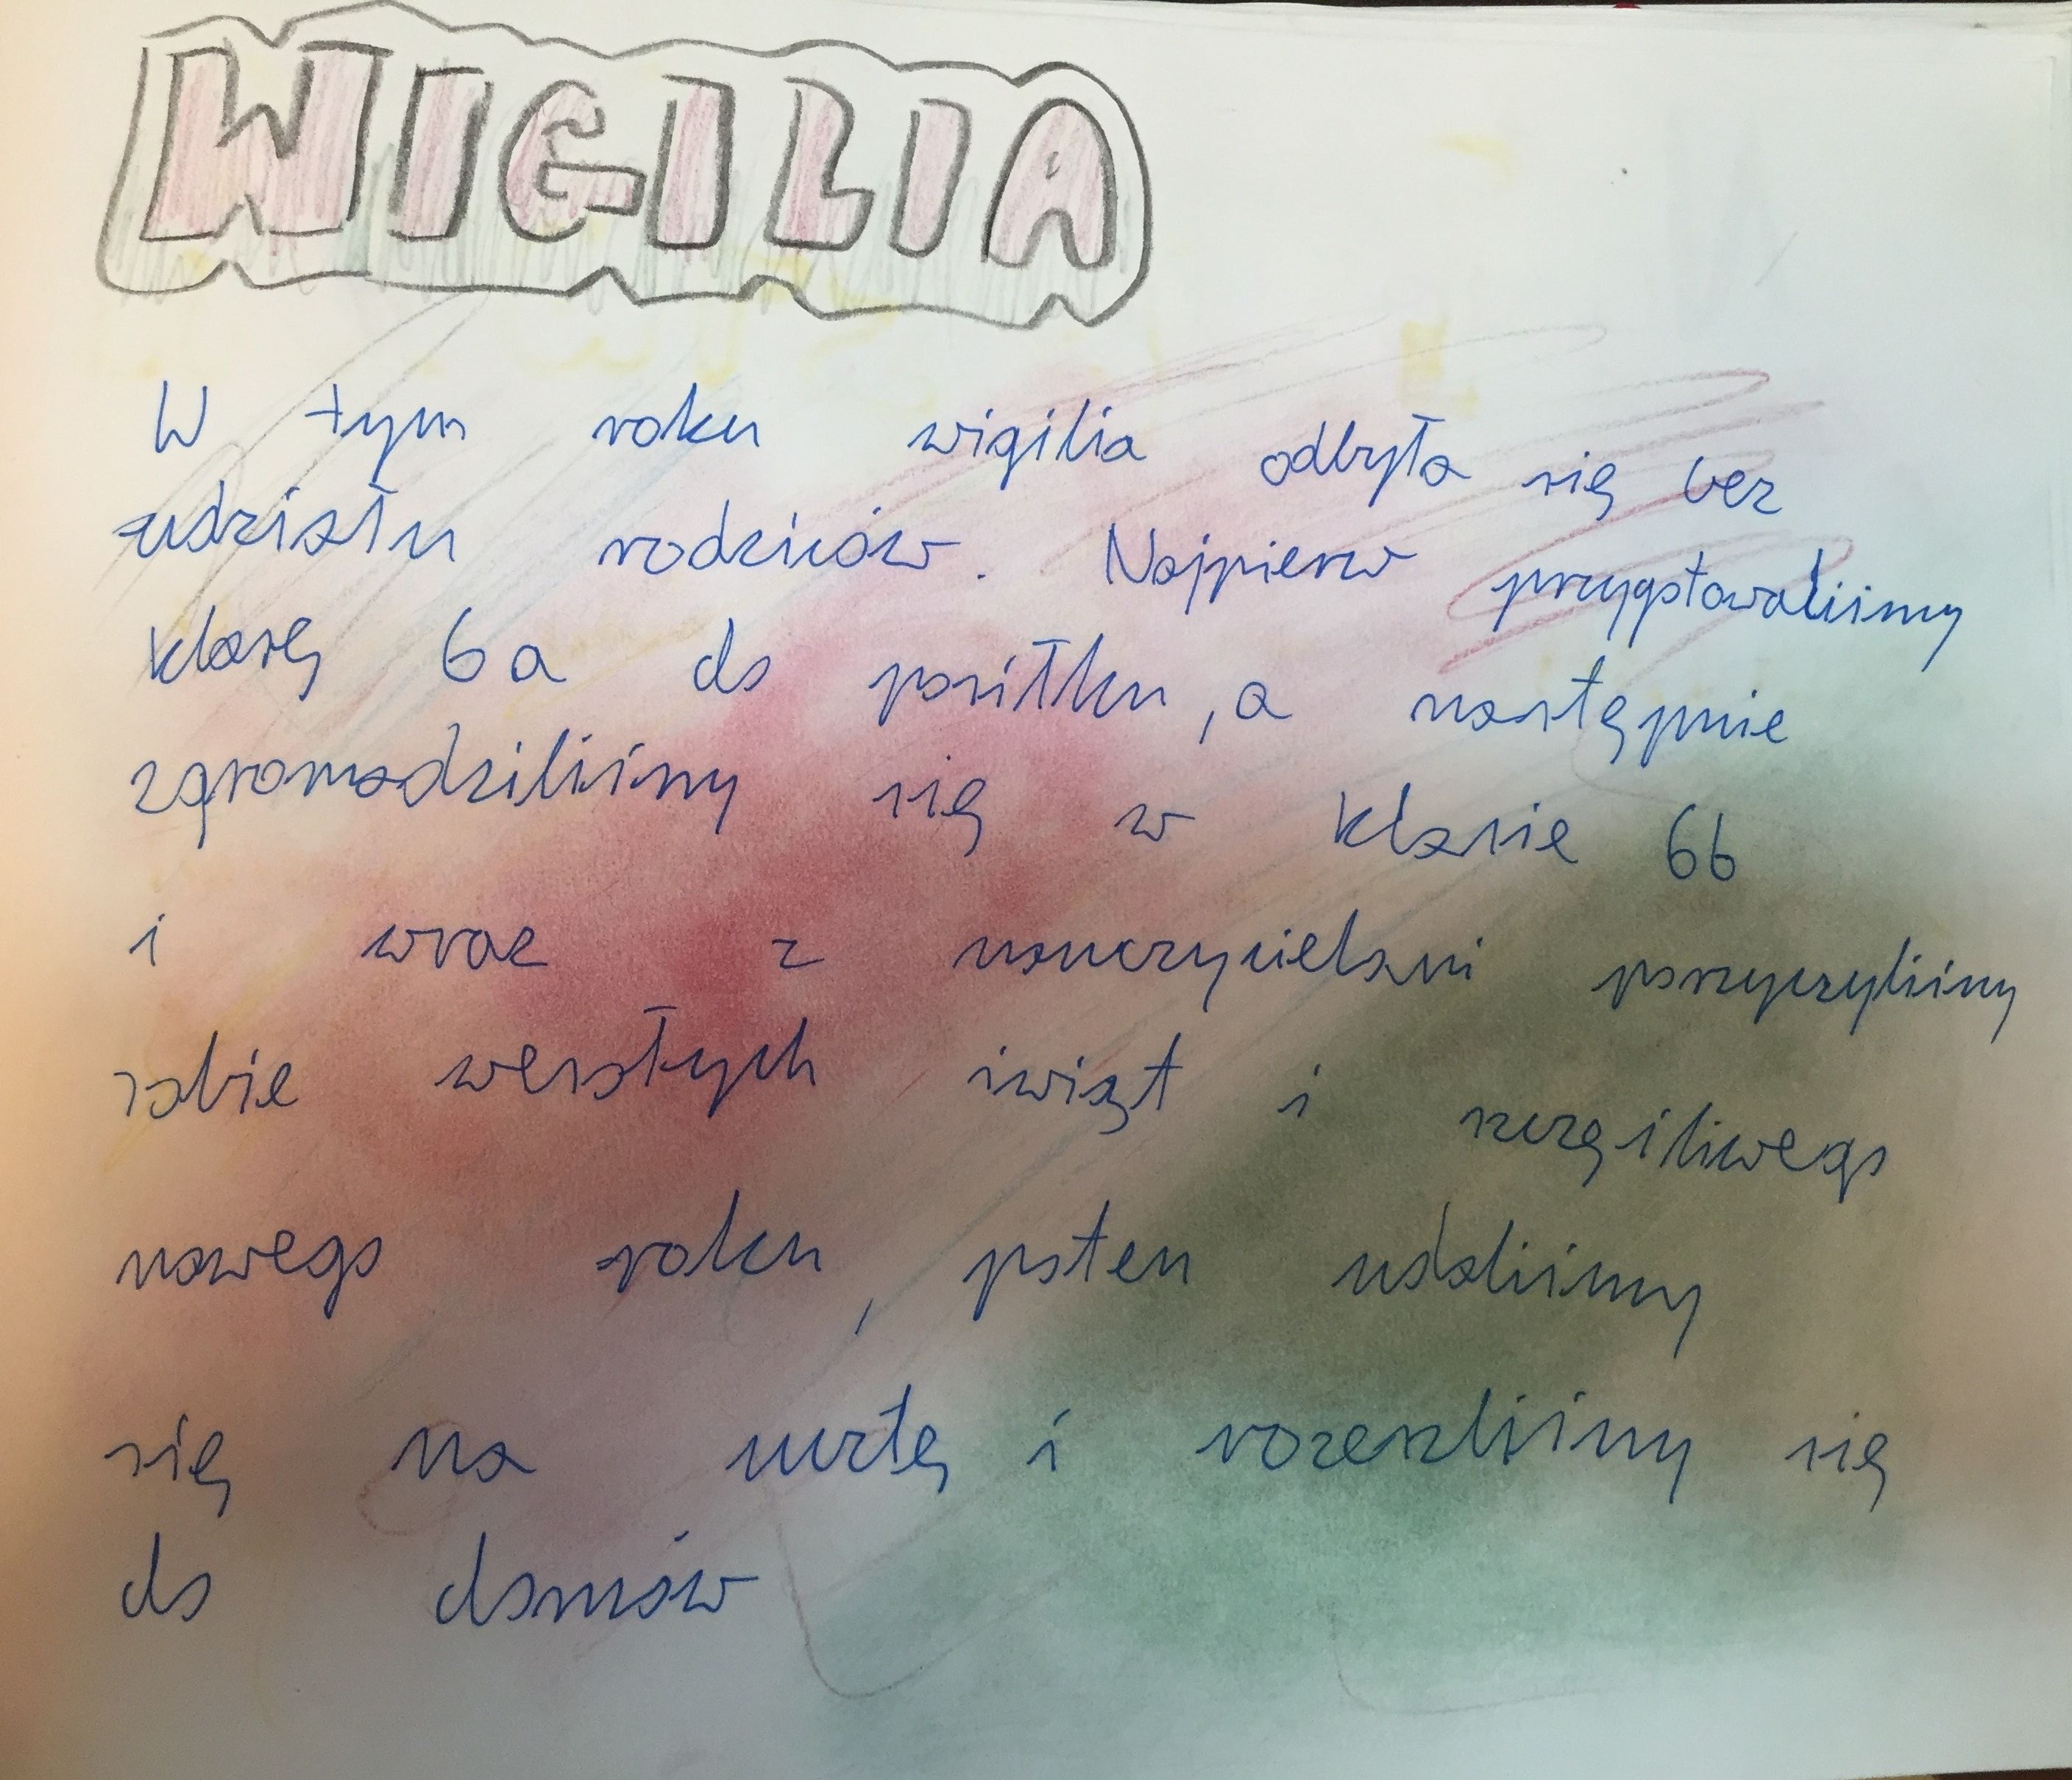 WIGILIA
W tym roku wigilia odbyła się bez
udziału rodziców. Najpierw przygotowaliśmy
klasę 6a do posiłku, a następnie
zgromadziliśmy się w klasie 6b
i wraz z nauczycielami poszyczyliśmy
sobie wesołych świąt i szczęśliwego
nowego roku, potem udaliśmy
się na ucztę i rozeszliśmy się
do domów